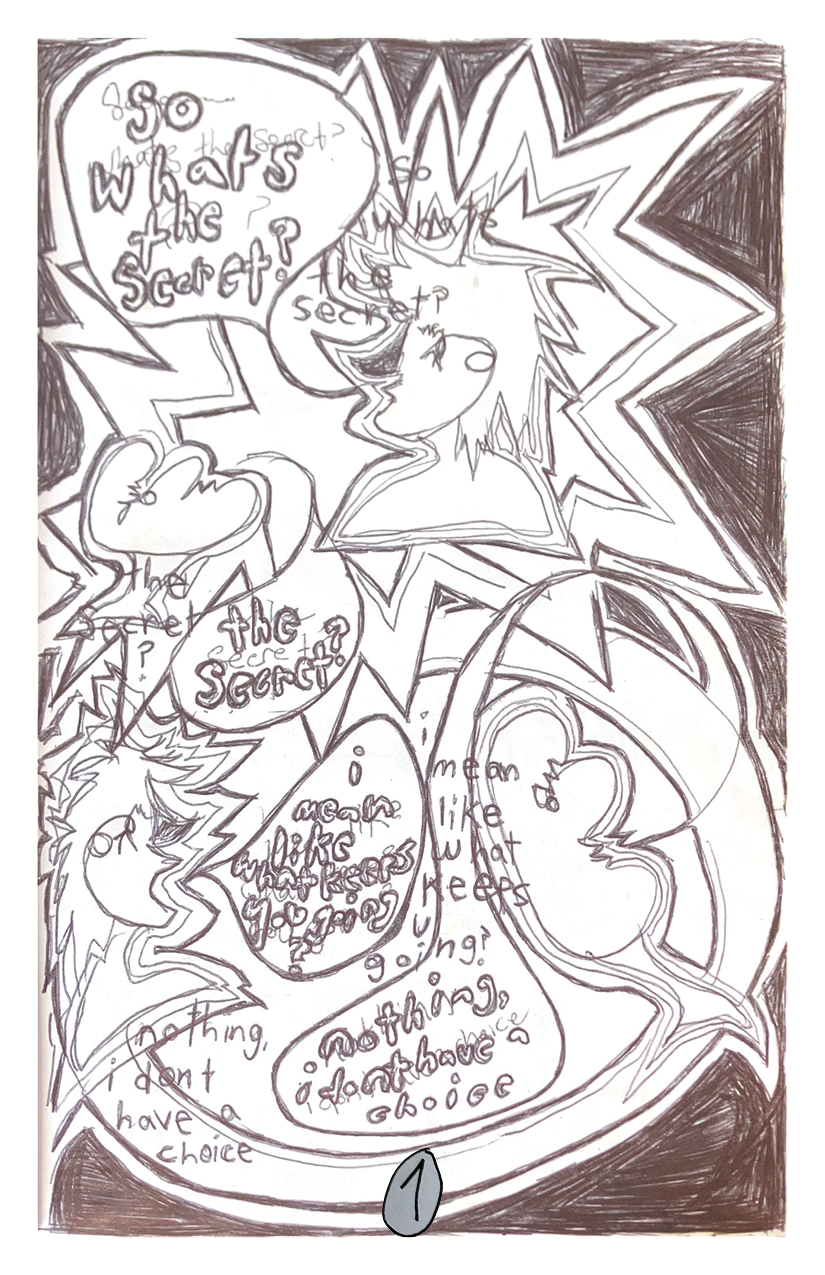 So
whats
the
Secret?
so
whats
the
secret?
the
Secret
?
the
Secret?
i
mean
like
what keeps
you going
?
i
mean
like
what
keeps
u
going?
nothing,
i dont have a
choice
nothing,
i dont
have a
choice
1